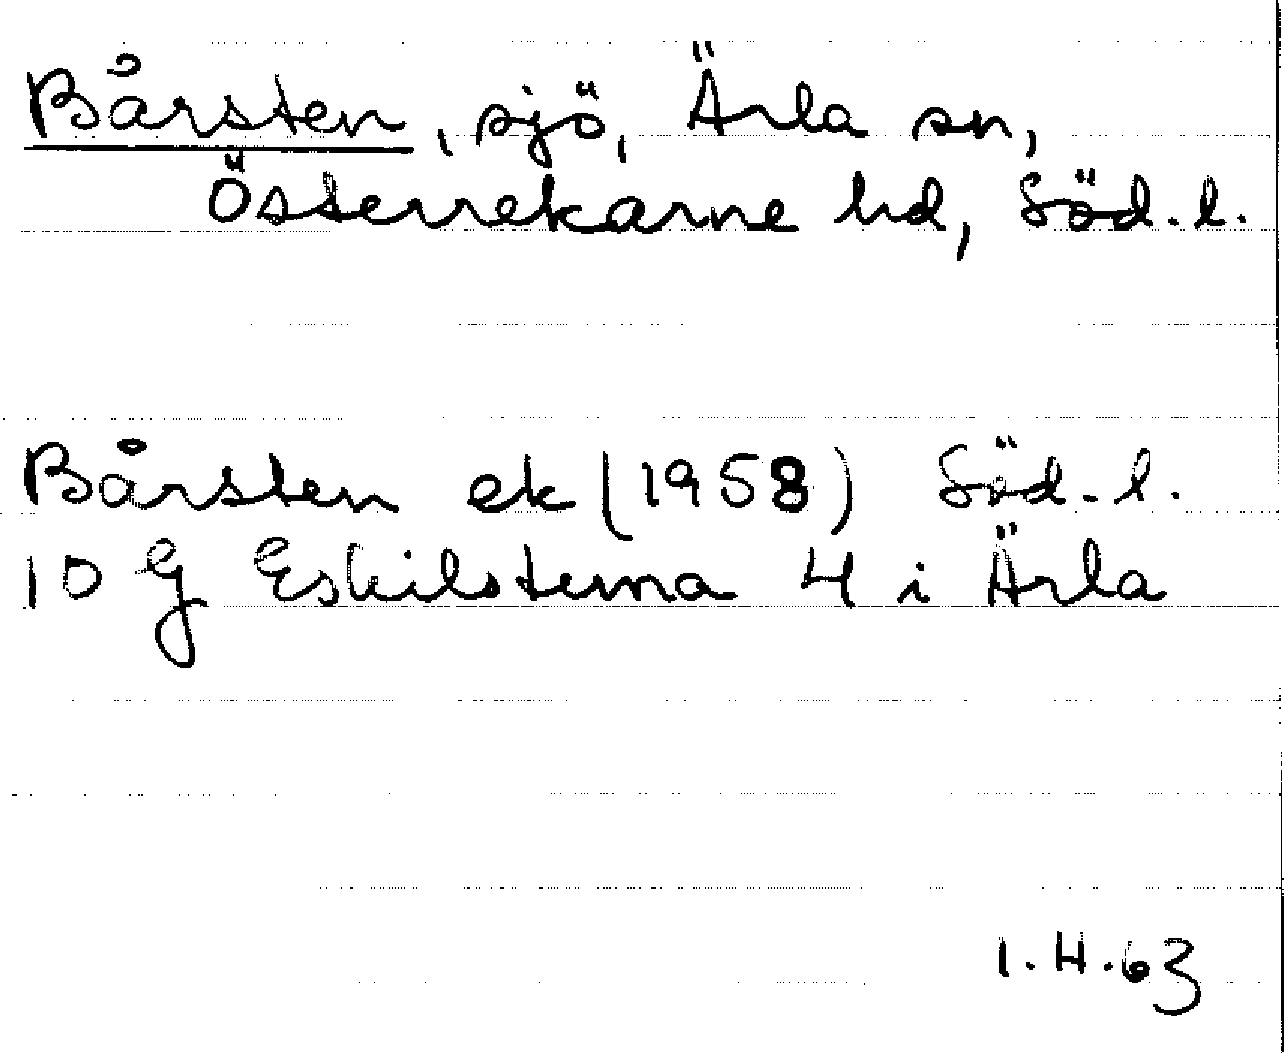 Bårsten, sjö, Ärla sn,
Österrekarne hd, Söd.l.
Bårsten ek (1958) Söd.l.
10 G Eskilstuna 4 i Ärla
1.4.63